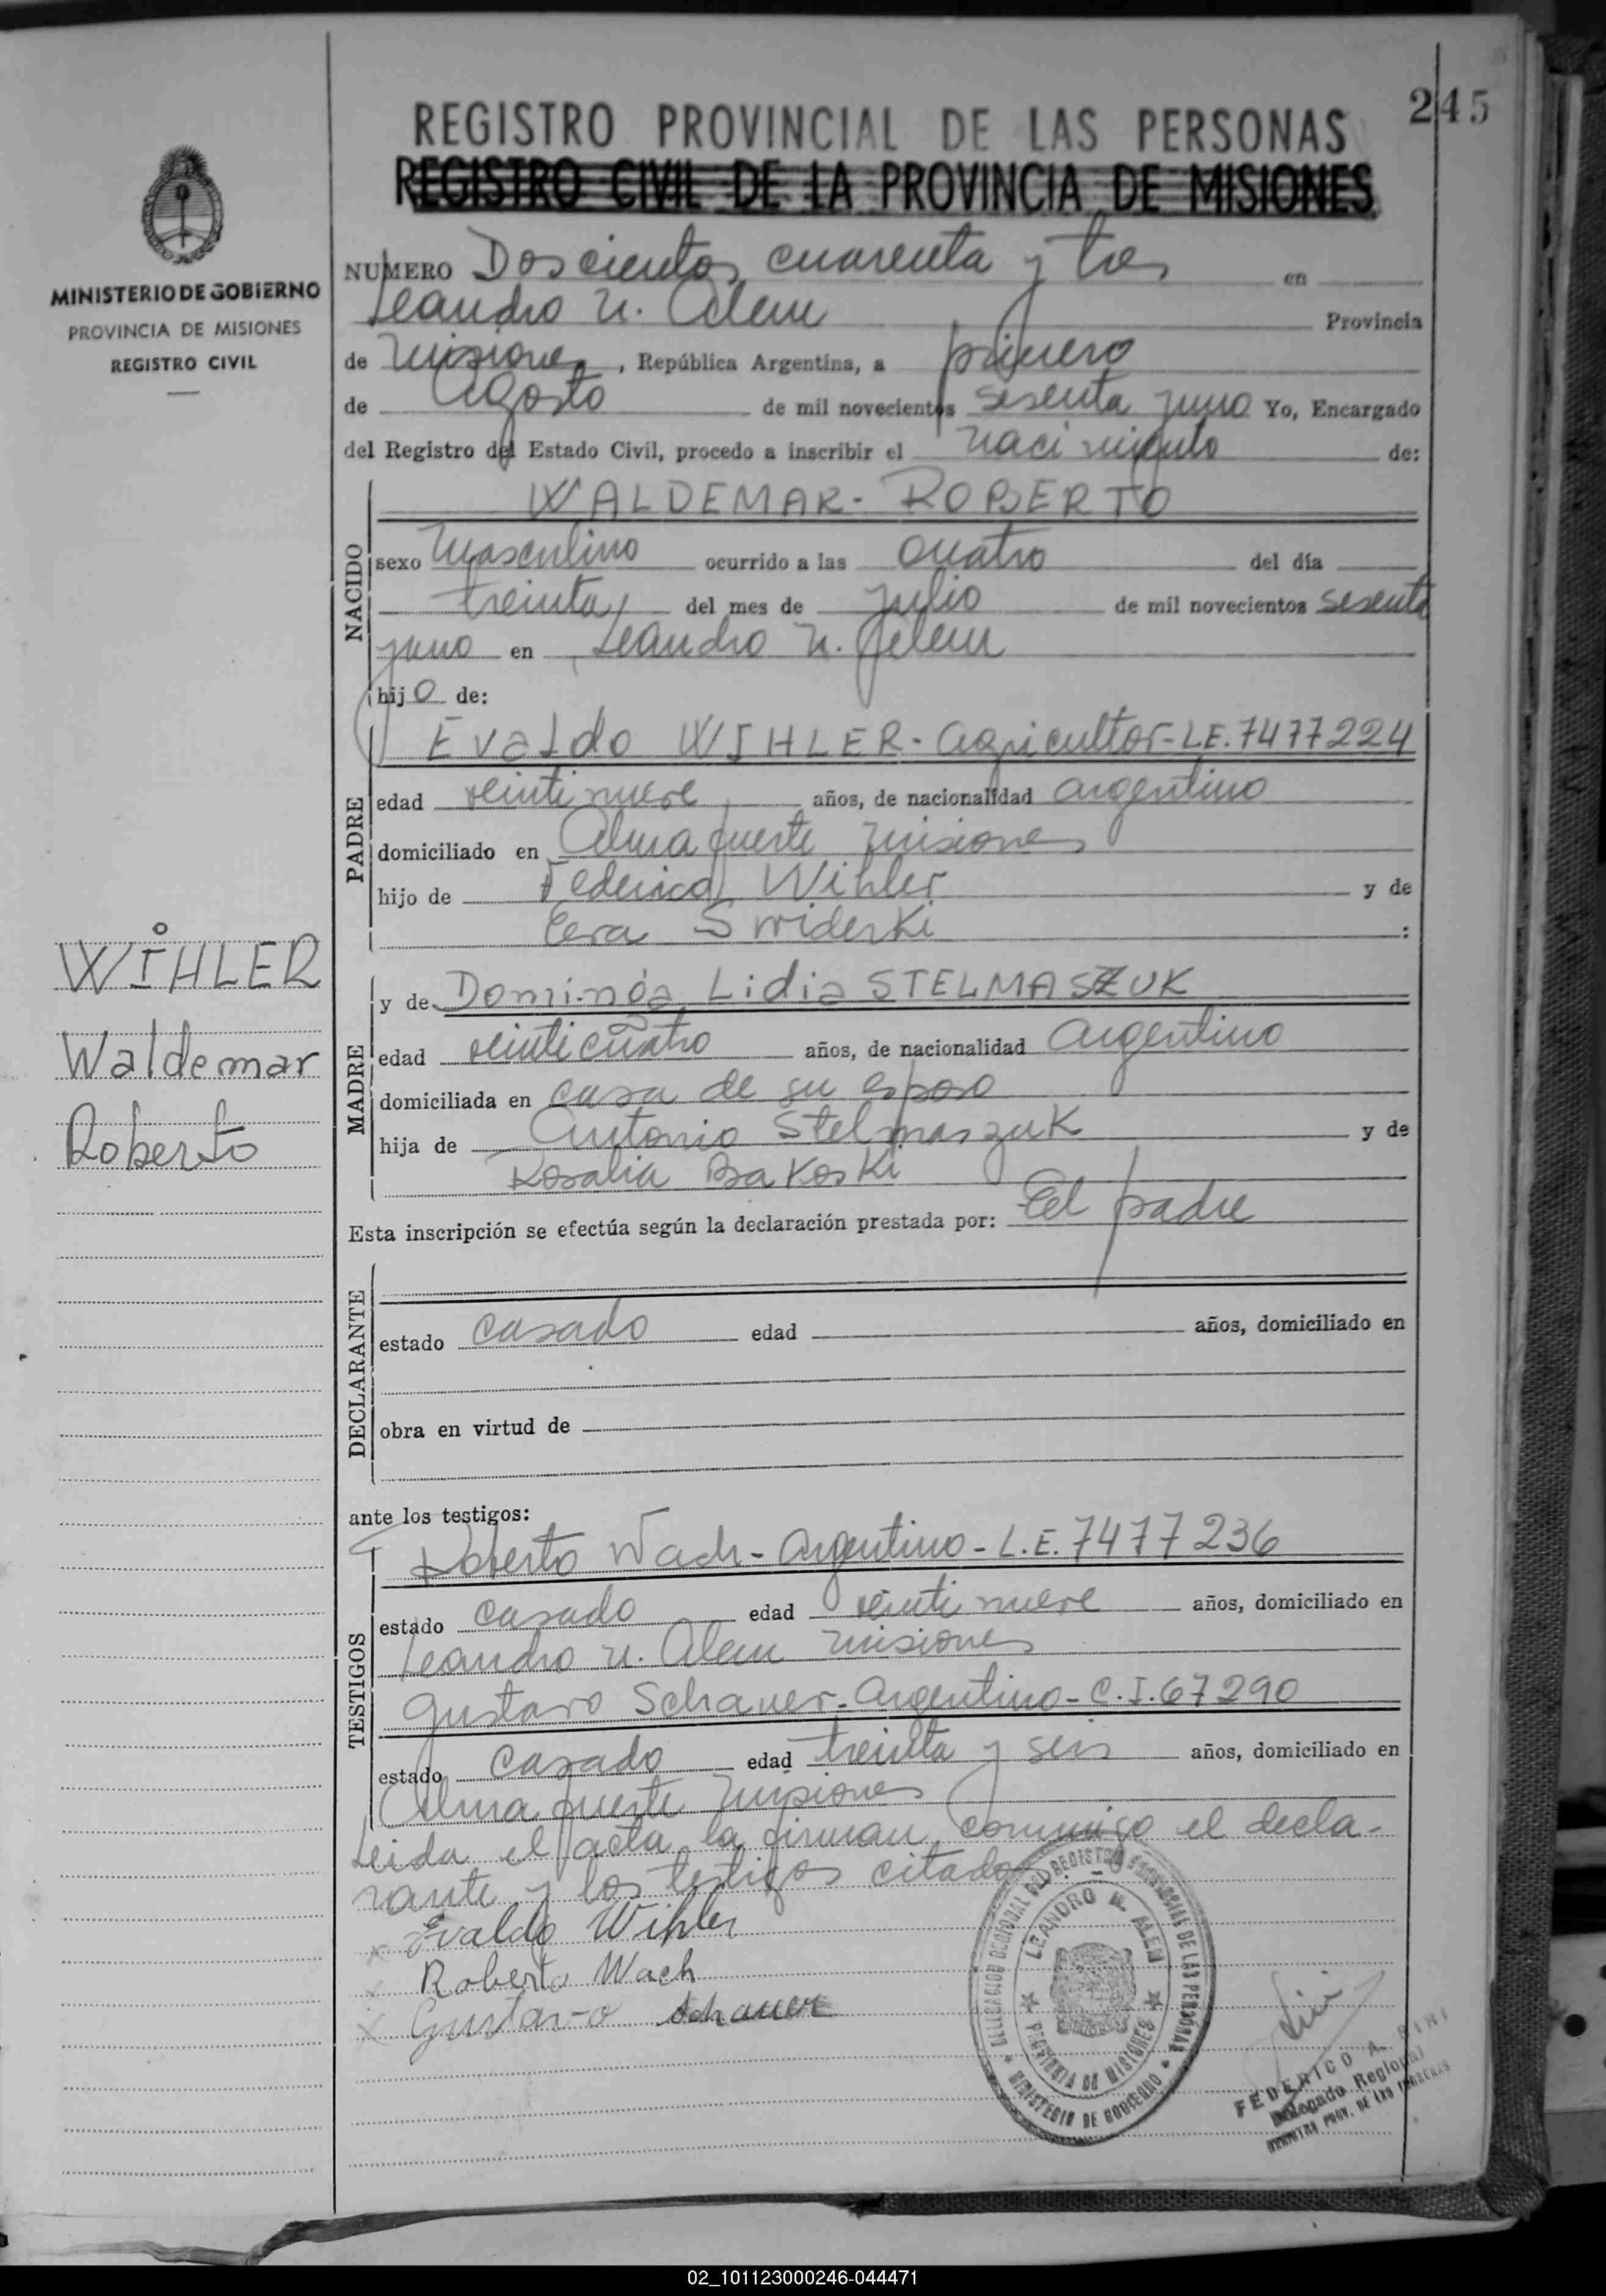 245
REGISTRO PROVINCIAL DE LAS PERSONAS
REGISTRO CIVIL DE LA PROVINCIA DE MISIONES
MINISTERIO DE GOBIERNO
PROVINCIA DE MISIONES
REGISTRO CIVIL
NUMERO Doscientos cuarenta y tres en
Leandro N. Alem Provincia
de Misiones, República Argentina, a primero
de Agosto de mil novecientos sesenta y uno Yo, Encargado
del Registro del Estado Civil, procedo a inscribir el nacimiento de:
NACIDO
WALDEMAR - ROBERTO
sexo Masculino ocurrido a las cuatro del día
treinta del mes de julio de mil novecientos sesenta
y uno en Leandro N. Alem
hijo de:
PADRE
Evaldo WIHLER - Agricultor - L.E. 7477224
edad veintinueve años, de nacionalidad argentino
domiciliado en Almafuerte Misiones
hijo de Federico Wihler y de
Swiderki :
WIHLER
Waldemar
Roberto
MADRE
y de Dominga Lidia STELMASZUK
edad veinticuatro años, de nacionalidad Argentino
domiciliada en casa de su esposo
hija de Antonio Stelmaszuk y de
Rosalia Bakoski
Esta inscripción se efectúa según la declaración prestada por: El padre
DECLARANTE
estado casado edad años, domiciliado en
obra en virtud de
ante los testigos:
TESTIGOS
Roberto Wach - Argentino - L.E. 7477236
estado casado edad veintinueve años, domiciliado en
Leandro N. Alem Misiones
Gustavo Schauer - Argentino - C.I. 67290
estado casado edad treinta y seis años, domiciliado en
Almafuerte Misiones
Leida el acta la firman conmigo el decla-
rante y los testigos citados
x Evaldo Wihler
x Roberto Wach
x Gustavo Schauer
DELEGACION REGIONAL DEL REGISTRO PROVINCIAL DE LAS PERSONAS
LEANDRO N. ALEM
PROVINCIA DE MISIONES
MINISTERIO DE GOBIERNO
FEDERICO A.
Delegado Regional
REGISTRO PROV. DE LAS PERSONAS
02_101123000246-044471